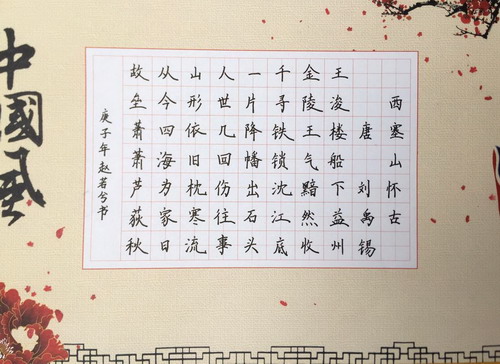 西塞山怀古
唐 刘禹锡
王浚楼船下益州
金陵王气黯然收
千寻铁锁沈江底
一片降幡出石头
人世几回伤往事
山形依旧枕寒流
从今四海为家日
故垒萧萧芦荻秋
庚子年赵若兮书
中國風